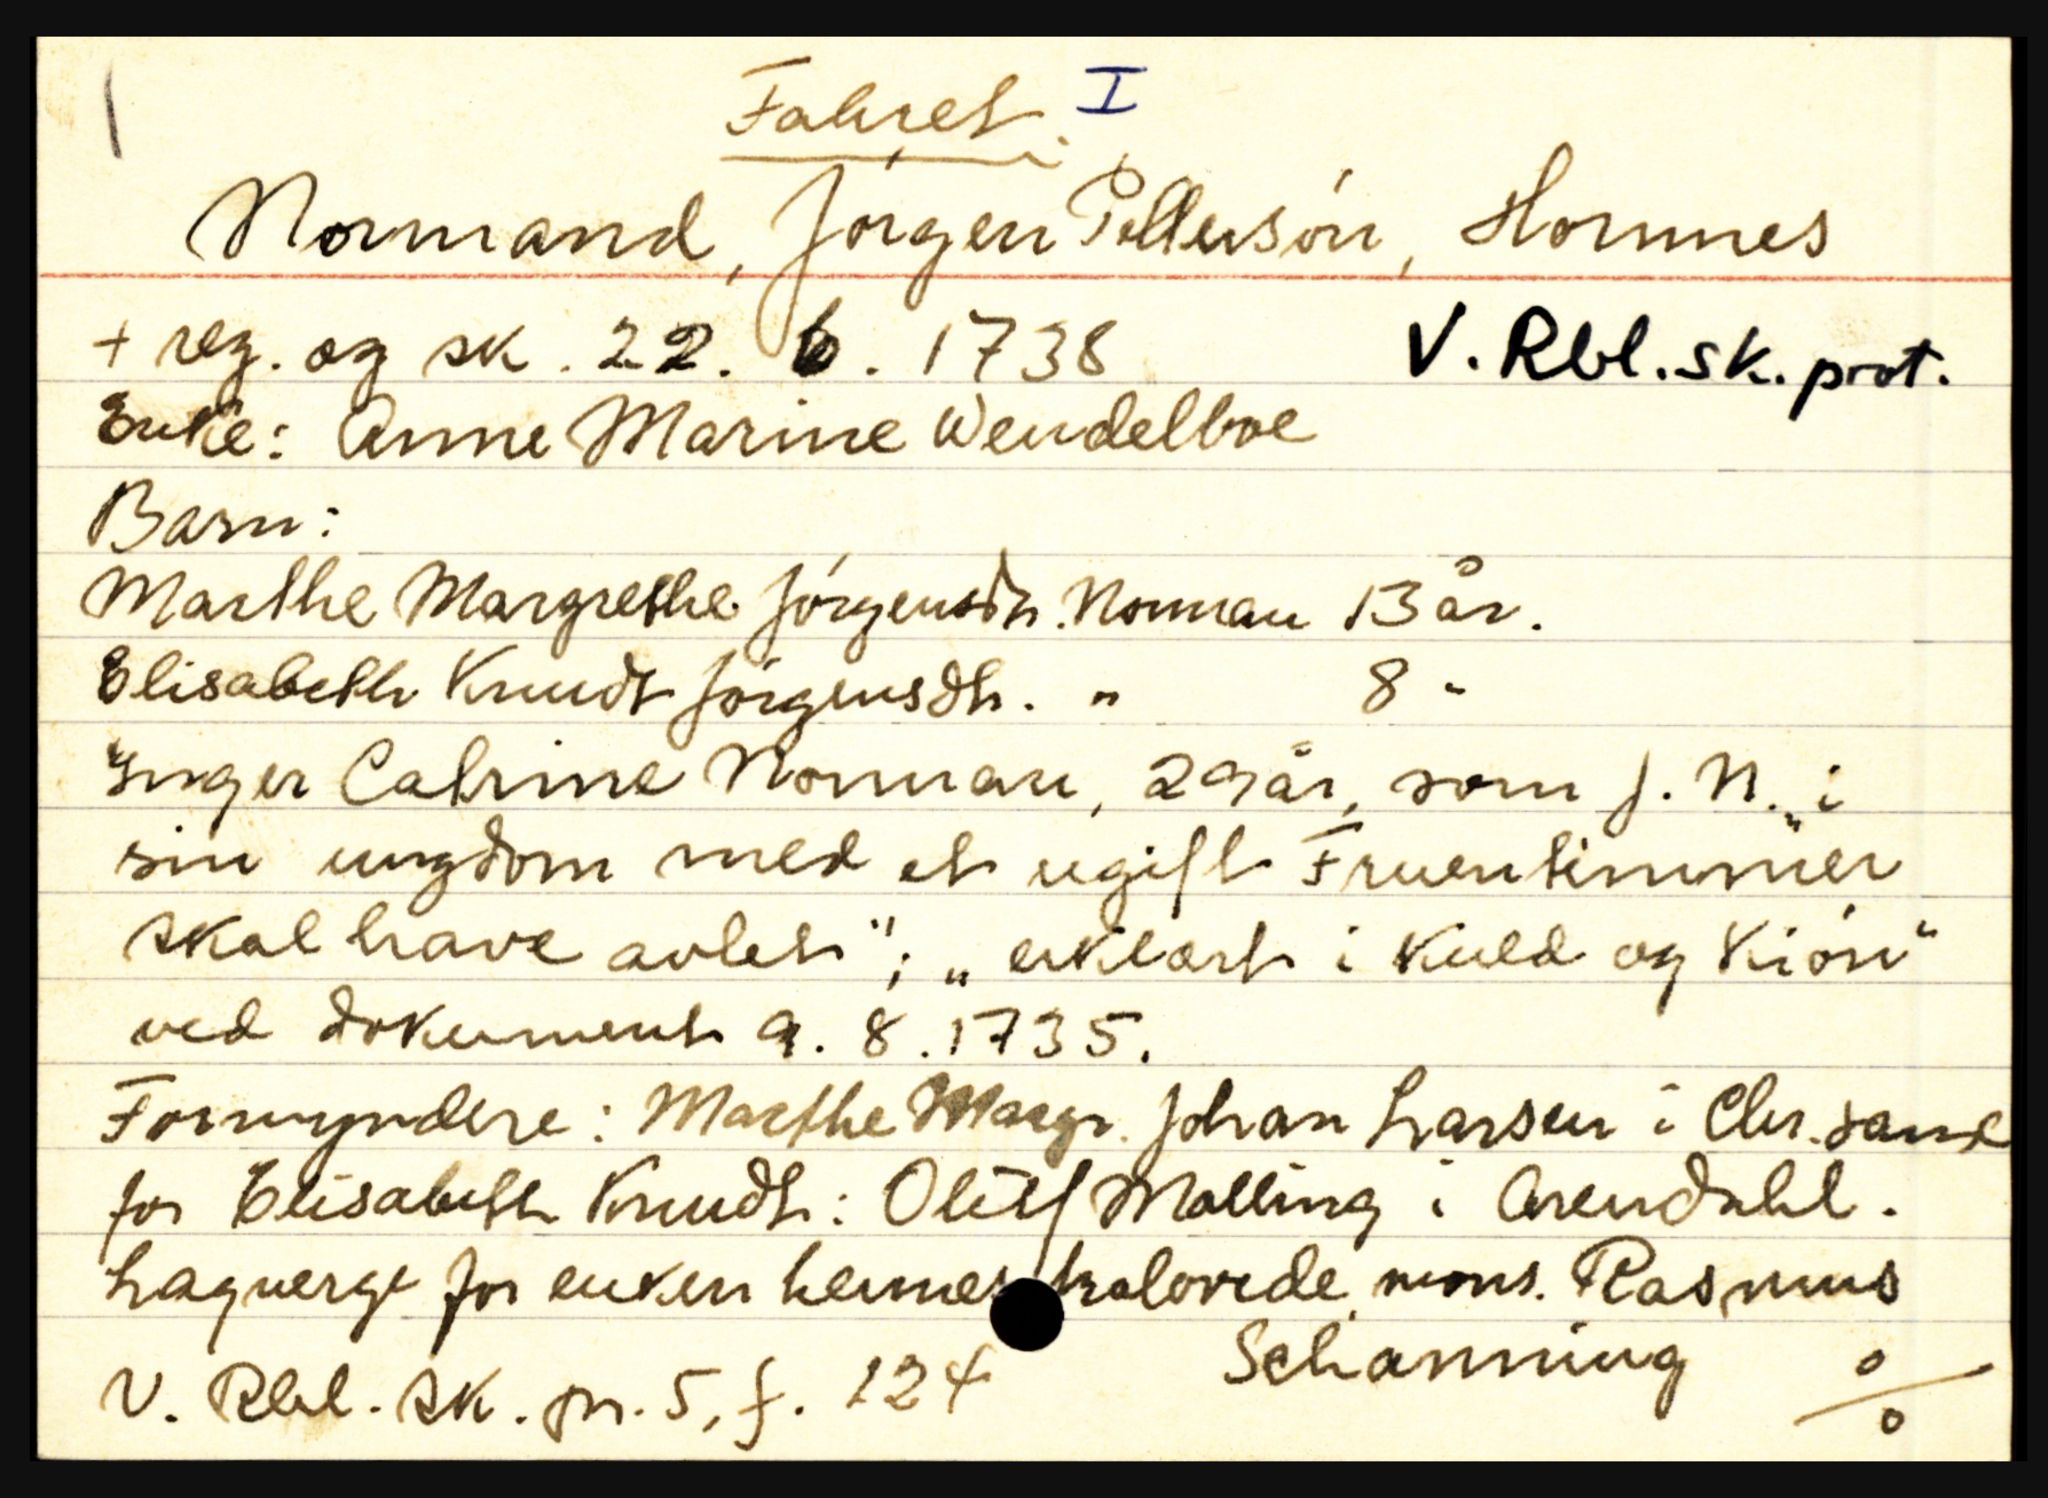 Fahret I
Normand, Jörgen Pettersön, Hornnes
+ reg. og sk. 22. 6. 1738 V. Rbl. sk. prot.
Enke: Anne Marine Wendelboe
Barn:
Marthe Margrethe Jörgensdtr. Norman 13 år.
Elisabeth Knudt Jörgensdtr. " 8 "
Inger Catrine Norman, 29 år, som J. N. „i
sin ungdom med et ugift Fruentimmer
skal have avlet"; „erklært i Kuld og Kiön"
ved dokument 9. 8. 1735.
Formyndere: Marthe Margr. Johan Larsen i Chr.sand
for Elisabeth Knudt: Oluf Malling i Arendahl.
Lagverge for enken hennes trolovede mons. Rasmus
Schanning
V. Rbl. sk. pr. 5, f. 124 %